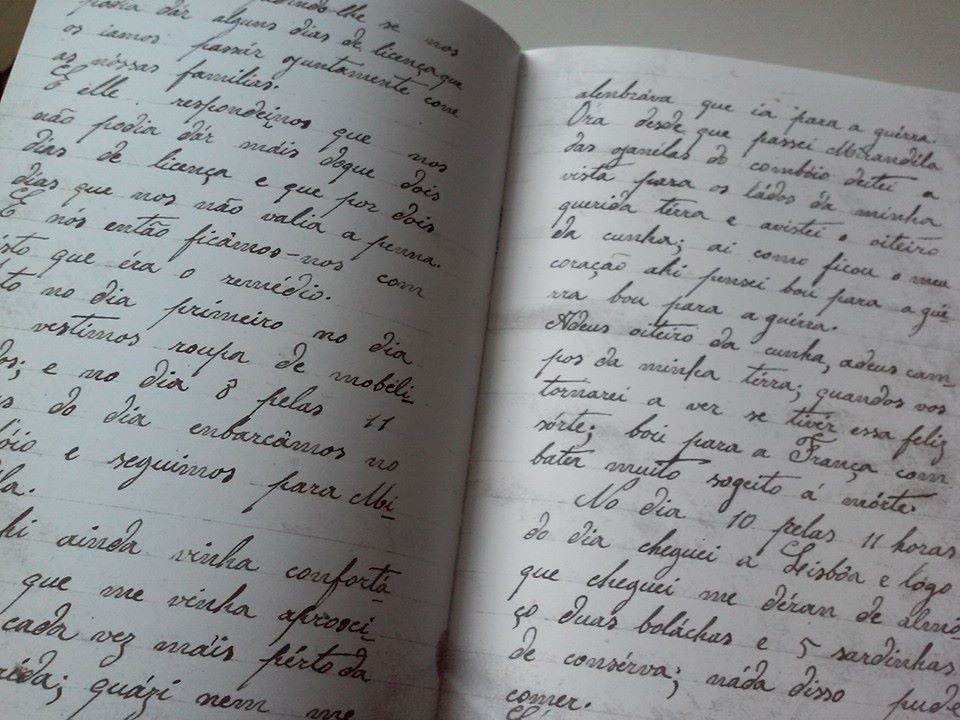 se nos
podia dár alguns dias de licença que
os iamos passár ajuntamente com
as nóssas familias.
E elle respondeinos que nos
não podia dár máis doque dois
dias de licença e que por dois
dias que nos não valia a penna.
E nós então ficâmos-nos com
isto que éra o remédio.
no dia primeiro no dia
vestimos roupa de mobeli-
e no dia 8 pelas 11
do dia embarcâmos no
e seguimos para Mi-
ainda vinha confortá
que me vinha aprosci
cada vez máis pérto da
quázi nem me
alenbráva que ia para a guérra.
Óra desde que passei Mirandéla
das ganélas do combóio deitei a
vista para os ládos dá minha
querida térra e avistei o oiteirô
da cunha; ai como ficou o meu
coração ahi pensei bou para a gué-
rra bou para a guérra.
Adeus oiteiro da cunha, adeus cam-
pos da minha térra; quandos vos
tornarei a ver se tivér essa feliz
sórte; bou para a França com-
bater muito sogeito á mórte.
No dia 10 pelas 11 horas
do dia cheguei a Lisbôa e lógo
que cheguei me déran de almó
ço duas boláchas e 5 sardinhas
de consérva; náda disso pude
comer.